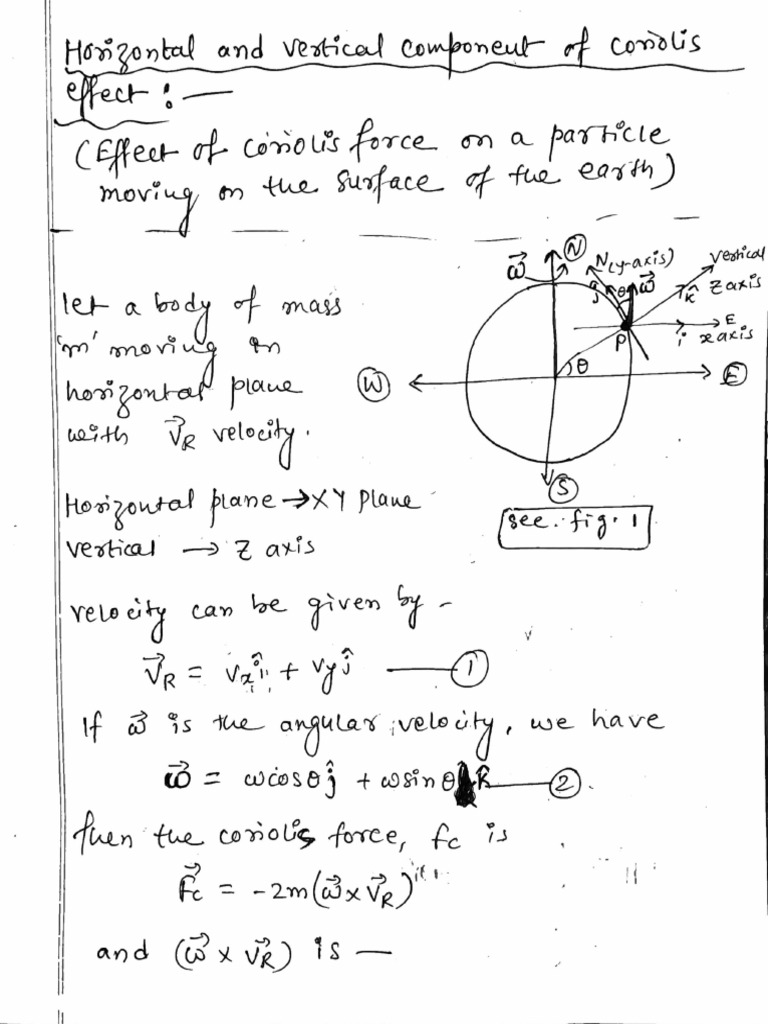 Horizontal and vertical component of coriolis
effect :—
(Effect of coriolis force on a particle
moving on the surface of the earth)
let a body of mass
'm' moving in
horizontal plane
with v⃗R velocity.
Horizontal plane → XY plane
vertical → Z axis
N
ω⃗
N(y-axis)
ĵ
θ
ω⃗
vertical
z axis
k̂
E
x axis
i
P
θ
W
E
S
see. fig. 1
velocity can be given by –
v⃗R = vxî + vyĵ —— 1
If ω⃗ is the angular velocity, we have
ω⃗ = ωcosθĵ + ωsinθ k̂ —— 2.
then the coriolis force, fc is
F⃗c = -2m(ω⃗ x v⃗R)
and (ω⃗ x v⃗R) is —